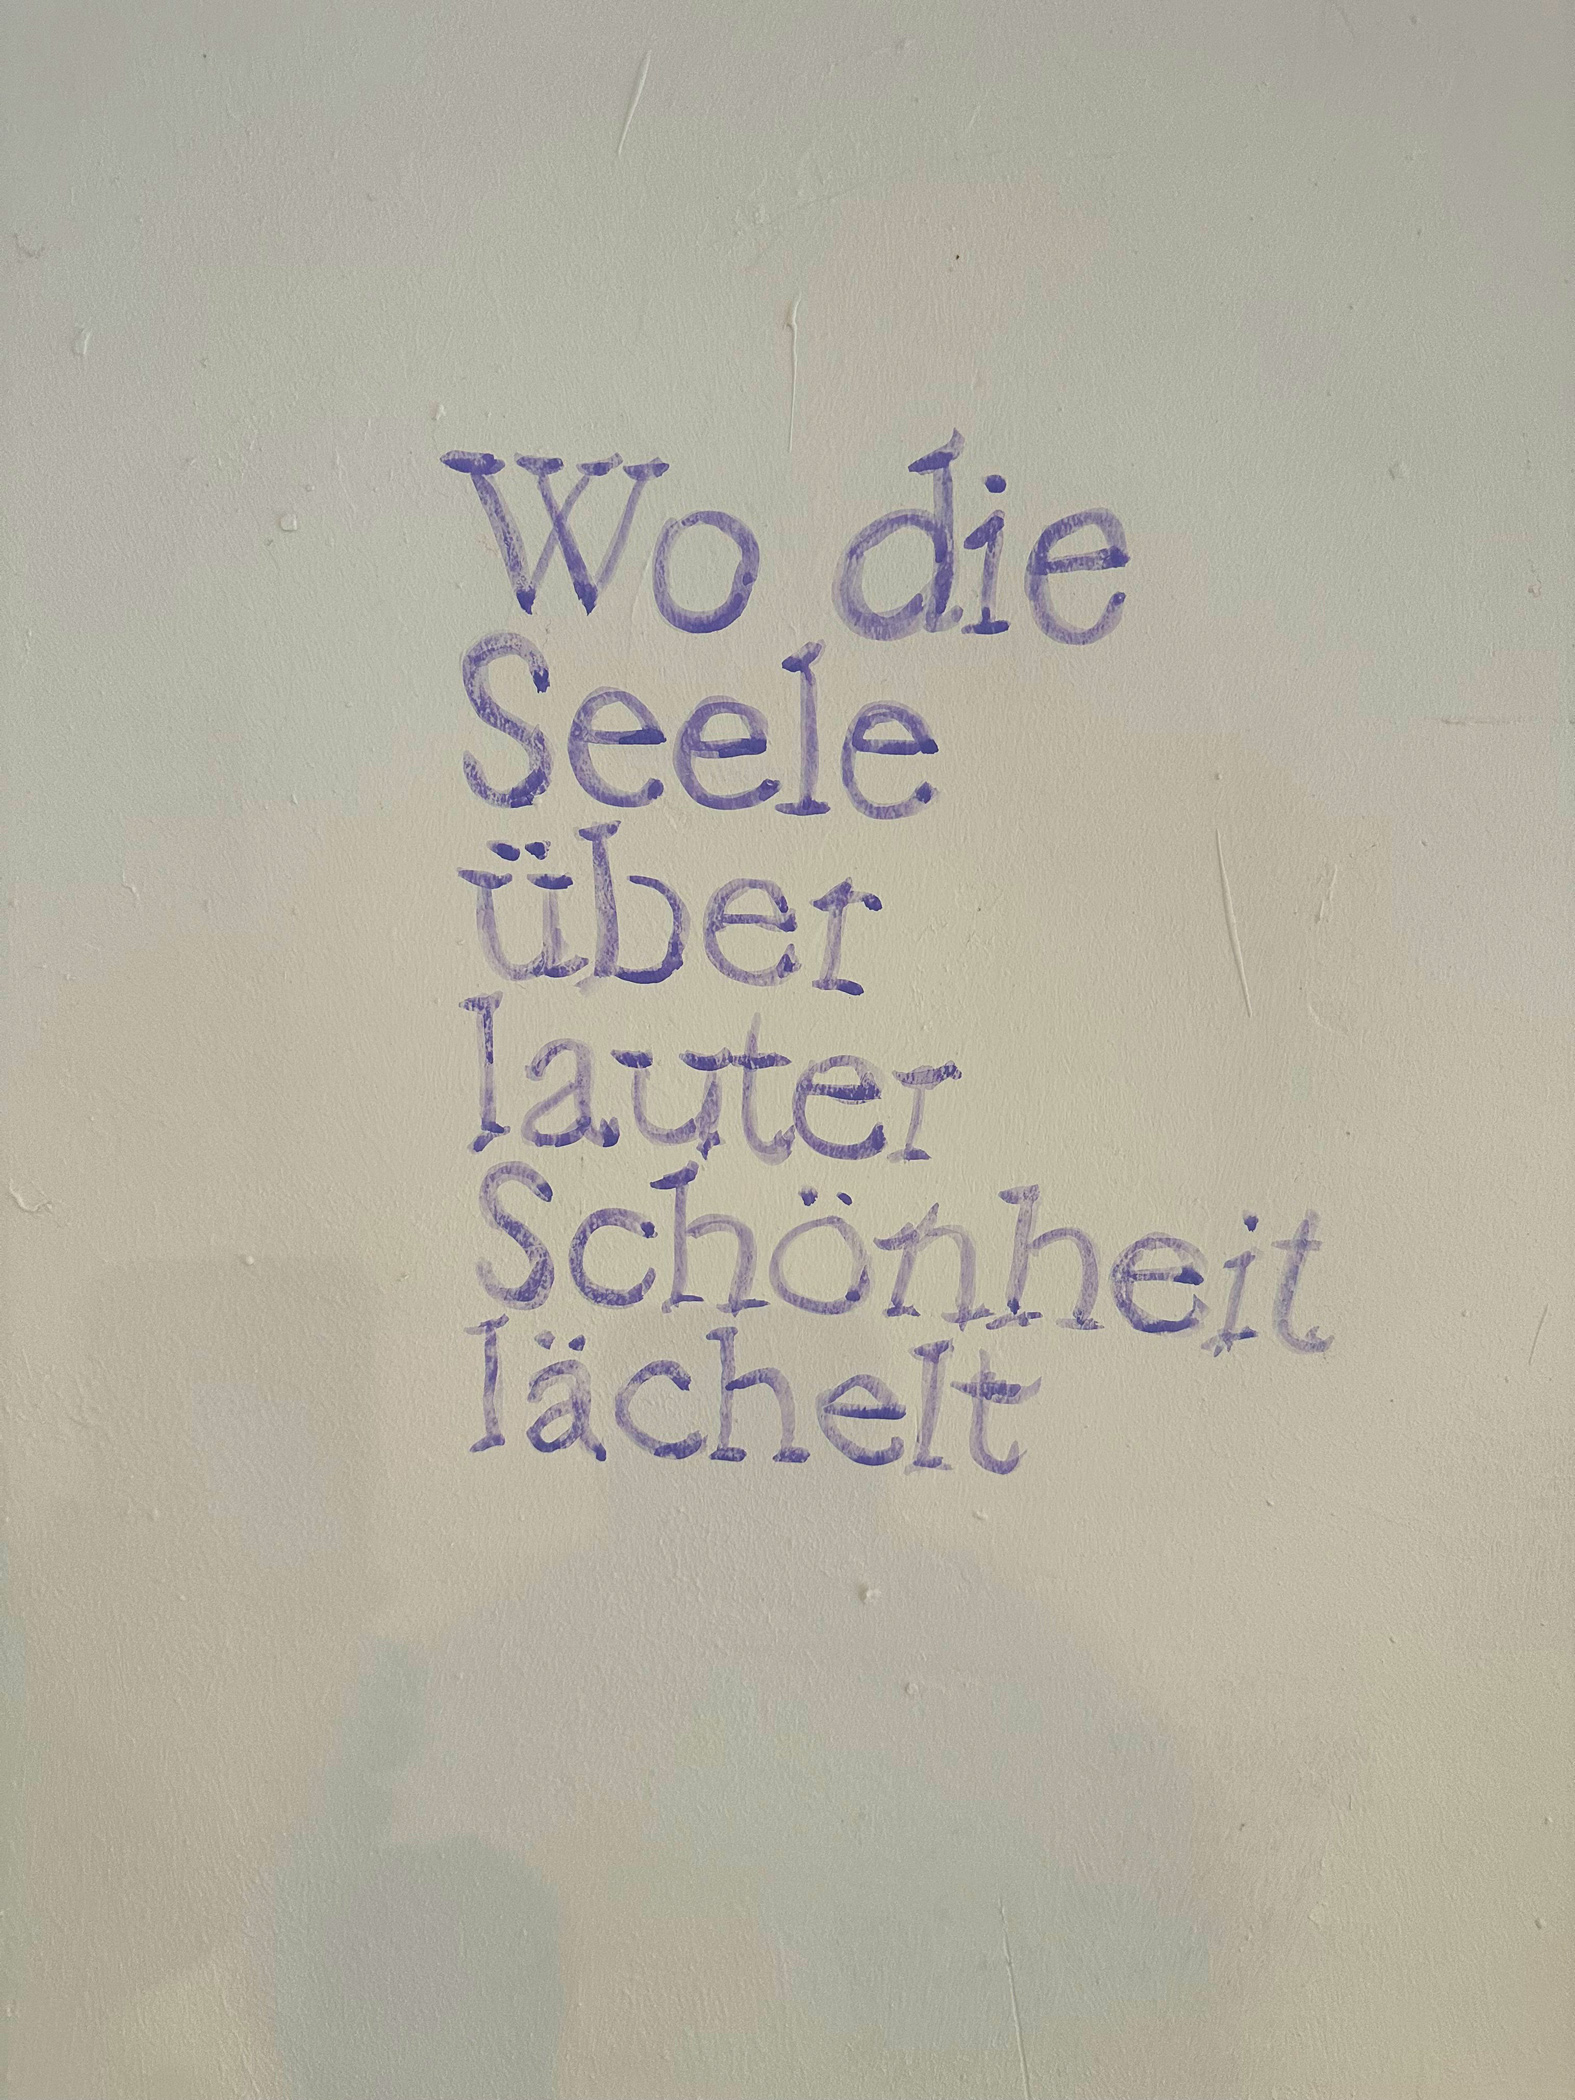 Wo die
Seele
über
lauter
Schönheit
lächelt